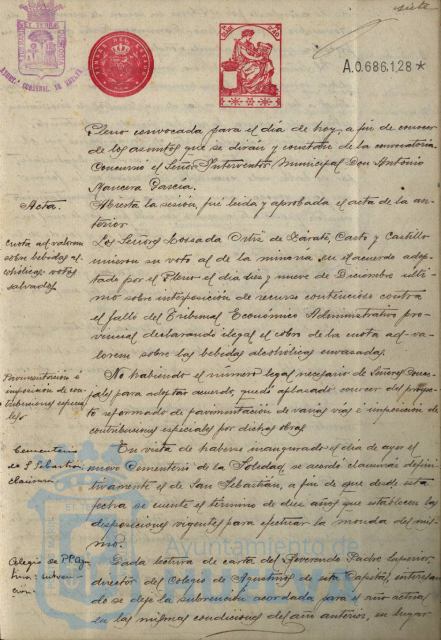 siete
A.0.686.128*
Pleno convocada para el día de hoy, a fin de conocer
de los asuntos que se dirán y constan de la convocatoria.
Concurrió el Señor Interventor Municipal Don Antonio
Mancera García.
Acta.
Abierta la sesión, fué leída y aprobada el acta de la an-
terior.
Cuota ad-valorem
sobre bebidas al-
cohólicas: votos
salvados.
Los Señores Lossada Ortiz de Zárate, Casto y Castillo
unieron su voto al de la minoría en el acuerdo adop-
tado por el Pleno el día diez y nueve de Diciembre últi-
mo sobre interposición de recurso contencioso contra
el fallo del Tribunal Económico Administrativo pro-
vincial declarando ilegal el cobro de la cuota ad-va-
lorem sobre las bebidas alcohólicas envasadas.
Pavimentación é
imposición de con-
tribuciones especia-
les
No habiendo el número legal necesario de Señores Conce-
jales para adoptar acuerdo, quedó aplazado conocer del proyec-
to reformado de pavimentación de varias vías é imposición de
contribuciones especiales por dichas obras
Cementerio
de S. Sebastián
clausura
En vista de haberse inaugurado el día de ayer el
nuevo Cementerio de la Soledad, se acordó clausurar defini-
tivamente el de San Sebastián, a fin de que desde esta
fecha se cuente el término de diez años que establecen las
disposiciones vigentes para efectuar la monda del mis-
mo.
Colegio de PP. Agus-
tinos: subven-
ción.
Dada lectura de carta del Reverendo Padre Superior,
director del Colegio de Agustinos de esta Capital, interesan-
do se deje la subvención acordada para el año actual
en las mismas condiciones del año anterior, en lugar
Ayuntamiento de